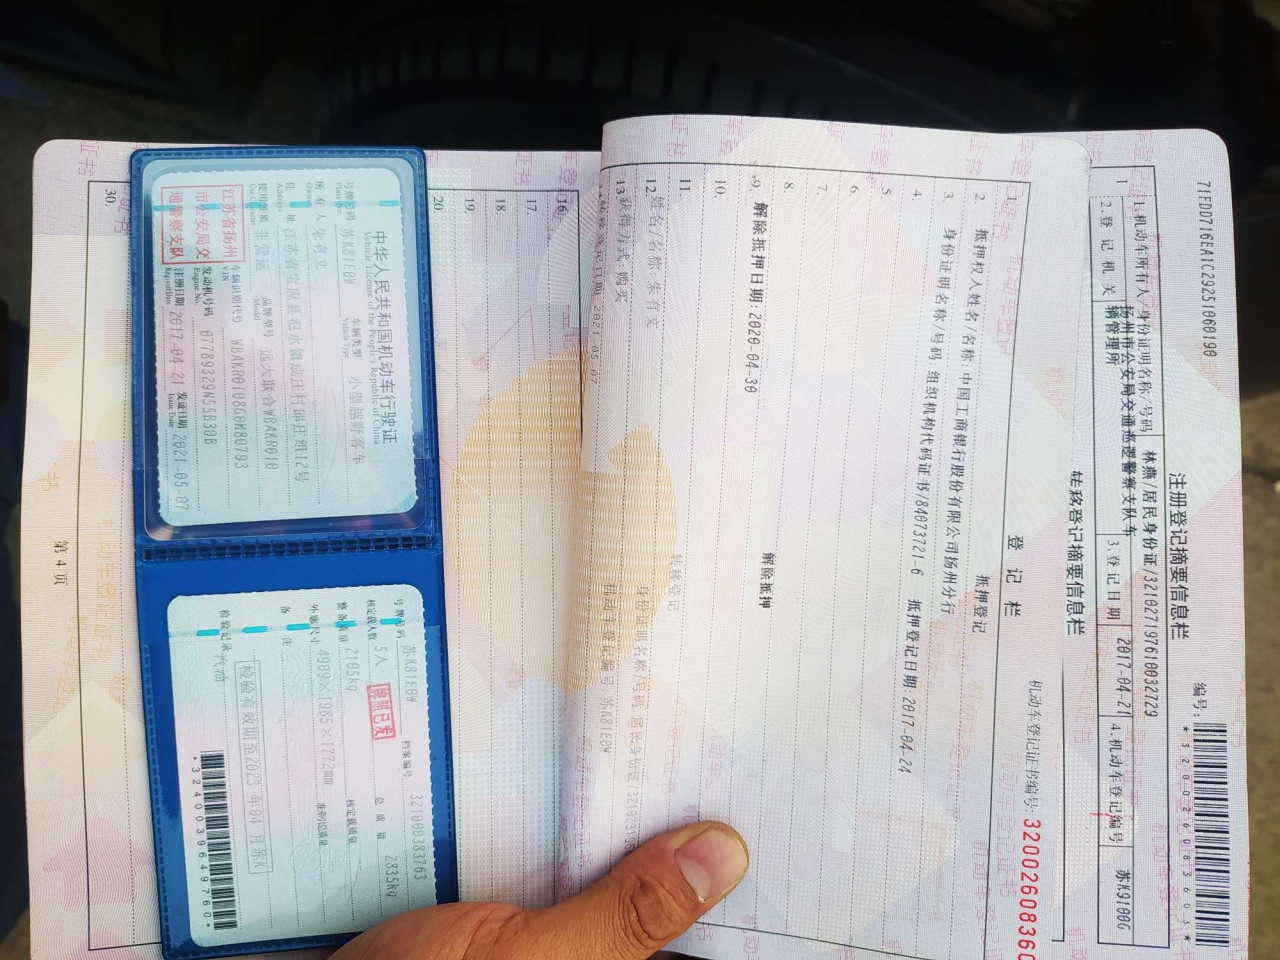 71FDD716EA1C29251060190
注册登记摘要信息栏
编号:
*320026083603*
1.机动车所有人/身份证明名称/号码 林燕/居民身份证/321027197610032729
2.登记机关 扬州市公安局交通巡逻警察支队车辆管理所 3.登记日期 2017-04-21 4.机动车登记编号 苏K9100G
转移登记摘要信息栏
机动车登记证书编号: 3200260836
登记栏
1. 抵押登记
2. 抵押权人姓名/名称:中国工商银行股份有限公司扬州分行
3. 身份证明名称/号码 组织机构代码证书/84073721-6 抵押登记日期:2017-04-24
4.
5
6.
7.
8.
9. 解除抵押 解除抵押日期:2020-04-30
10.
11. 转移登记
12. 姓名/名称:朱有文 身份证明名称/号码 居民身份证
13 获得方式 购买 机动车登记编号:苏K81E0W
登记日期:2021-05-07
16
17.
18
19
20
30.
第 4 页
中华人民共和国机动车行驶证
Vehicle License of the People's Republic of China
号牌号码 苏K81E0W 车辆类型 小型越野客车
Plate No. Vehicle Type
所有人 朱有文
Owner
住址 江苏省宝应县氾水镇成庄村邱庄组12号
Address
使用性质 非营运 品牌型号 远大联合WBAKR010
Use Character Model
江苏省扬州市公安局交通警察支队
车辆识别代号 WBAKR0108G0M80793
VIN
发动机号码 07789329N55B30B
Engine No.
注册日期 2017-04-21 发证日期 2021-05-07
Register Date Issue Date
号牌号码 苏K81E0W 档案编号 321000383763
核定载人数 5人 总质量 2835kg
牌照已发
整备质量 2105kg 核定载质量
外廓尺寸 4909×1985×1772mm 准牵引总质量
备注
检验有效期至2023年04月苏K
检验记录 汽油
*3240039649760*